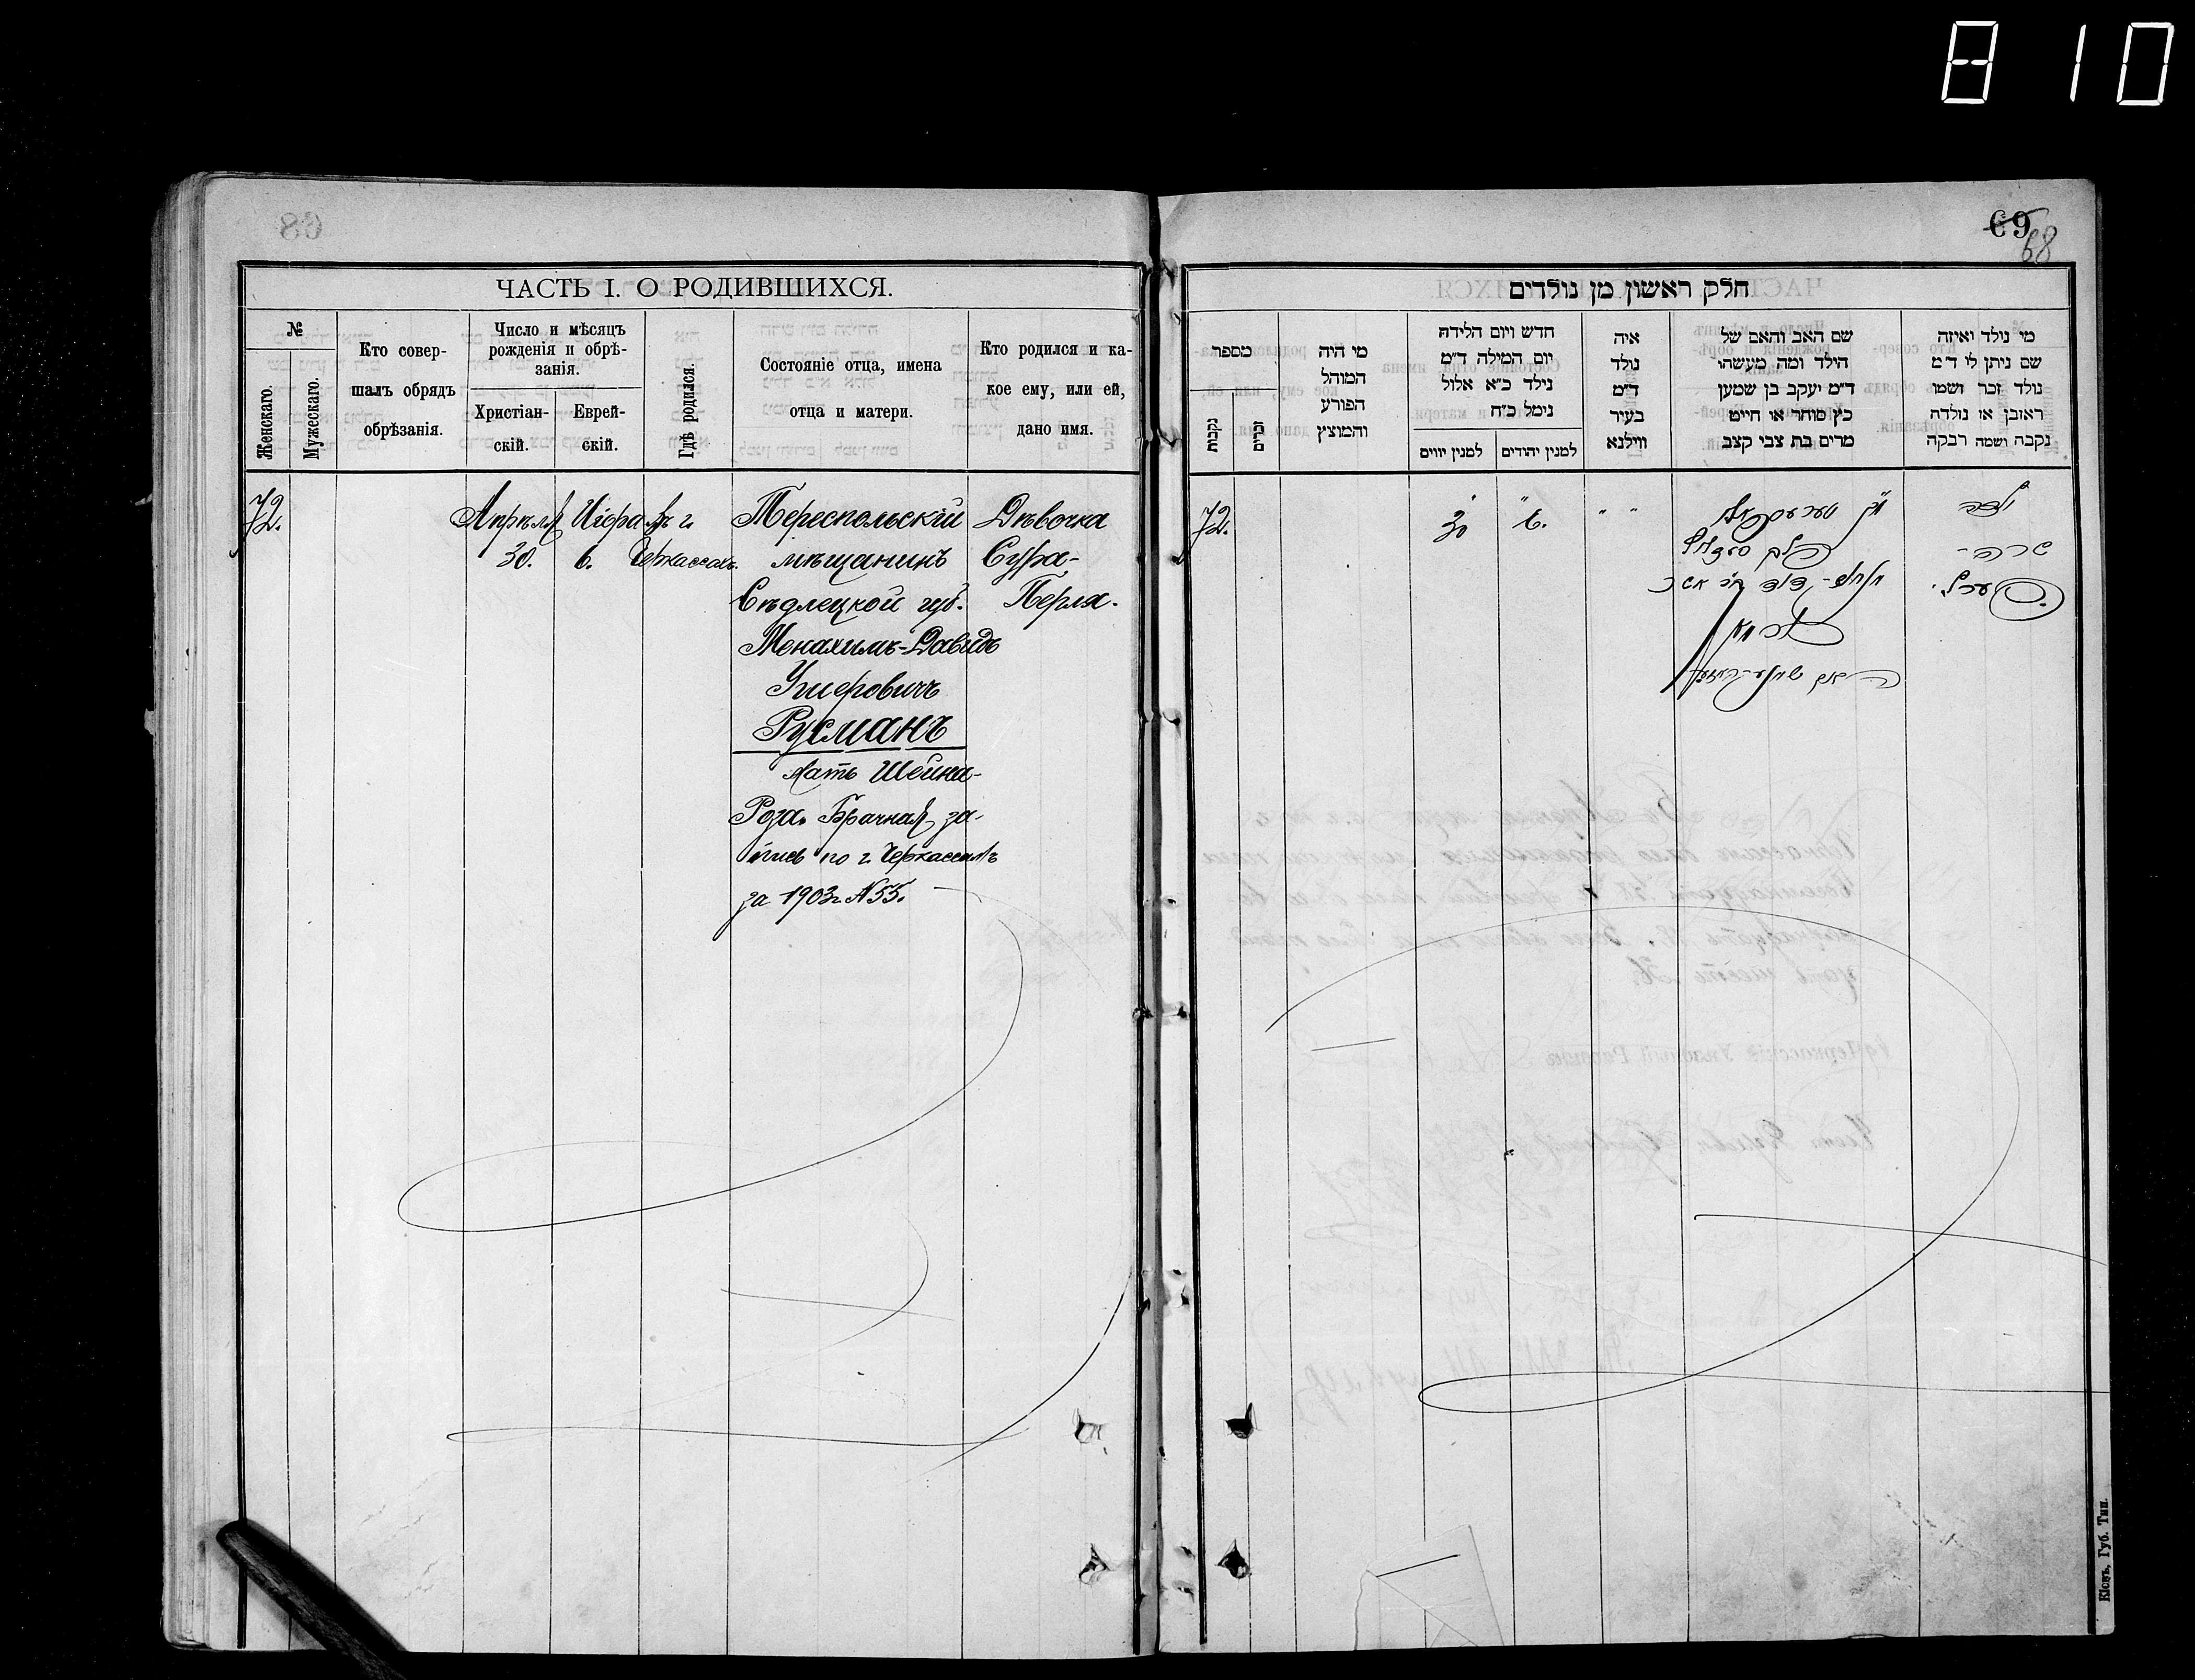 810
68
ЧАСТЬ I. О РОДИВШИХСЯ.
№
Женскаго.
Мужескаго.
Кто совер-
шалъ обрядъ
обрѣзанія.
Число и мѣсяцъ
рожденія и обрѣ-
занія.
Христіан-
скій.
Еврей-
скій.
Гдѣ родился.
Состояніе отца, имена
отца и матери.
Кто родился и ка-
кое ему, или ей,
дано имя.
72.
Апрѣля
30.
Иіора
6.
Въ г.
Черкассахъ.
Тереспольскій
мѣщанинъ
Сѣдлецкой губ.
Менахимъ-Давидъ
Ушеровичъ
Русманъ
Мать Шейна-
Роза. Брачная за-
пись по г. Черкассамъ
за 1903г. N 55.
Дѣвочка
Сура-
Перля.
69
68
חלק ראשון מן נולדים
מספר
נקבות
זכרים
מי היה
המוהל
הפורע
והמוצץ
חדש ויום הלידה
יום המילה ד״מ
נילד כ״א אלול
נימל כ״ח
למנין יווים
למנין יהודים
איה
נולד
ד״מ
בעיר
ווילנא
שם האב והאם של
הילד ומה מעשהו
ד״מ יעקב בן שמען
כץ סוחר או חייט
מרים בת צבי קצב
מי נולד ואיזה
שם ניתן לו ד״מ
נולד זכר ושמו
ראובן או נולדה
נקבה ושמה רבקה
72.
30
6.
" "
ילדה
שרה-
פערל.
Кіевъ, Губ. Тип.